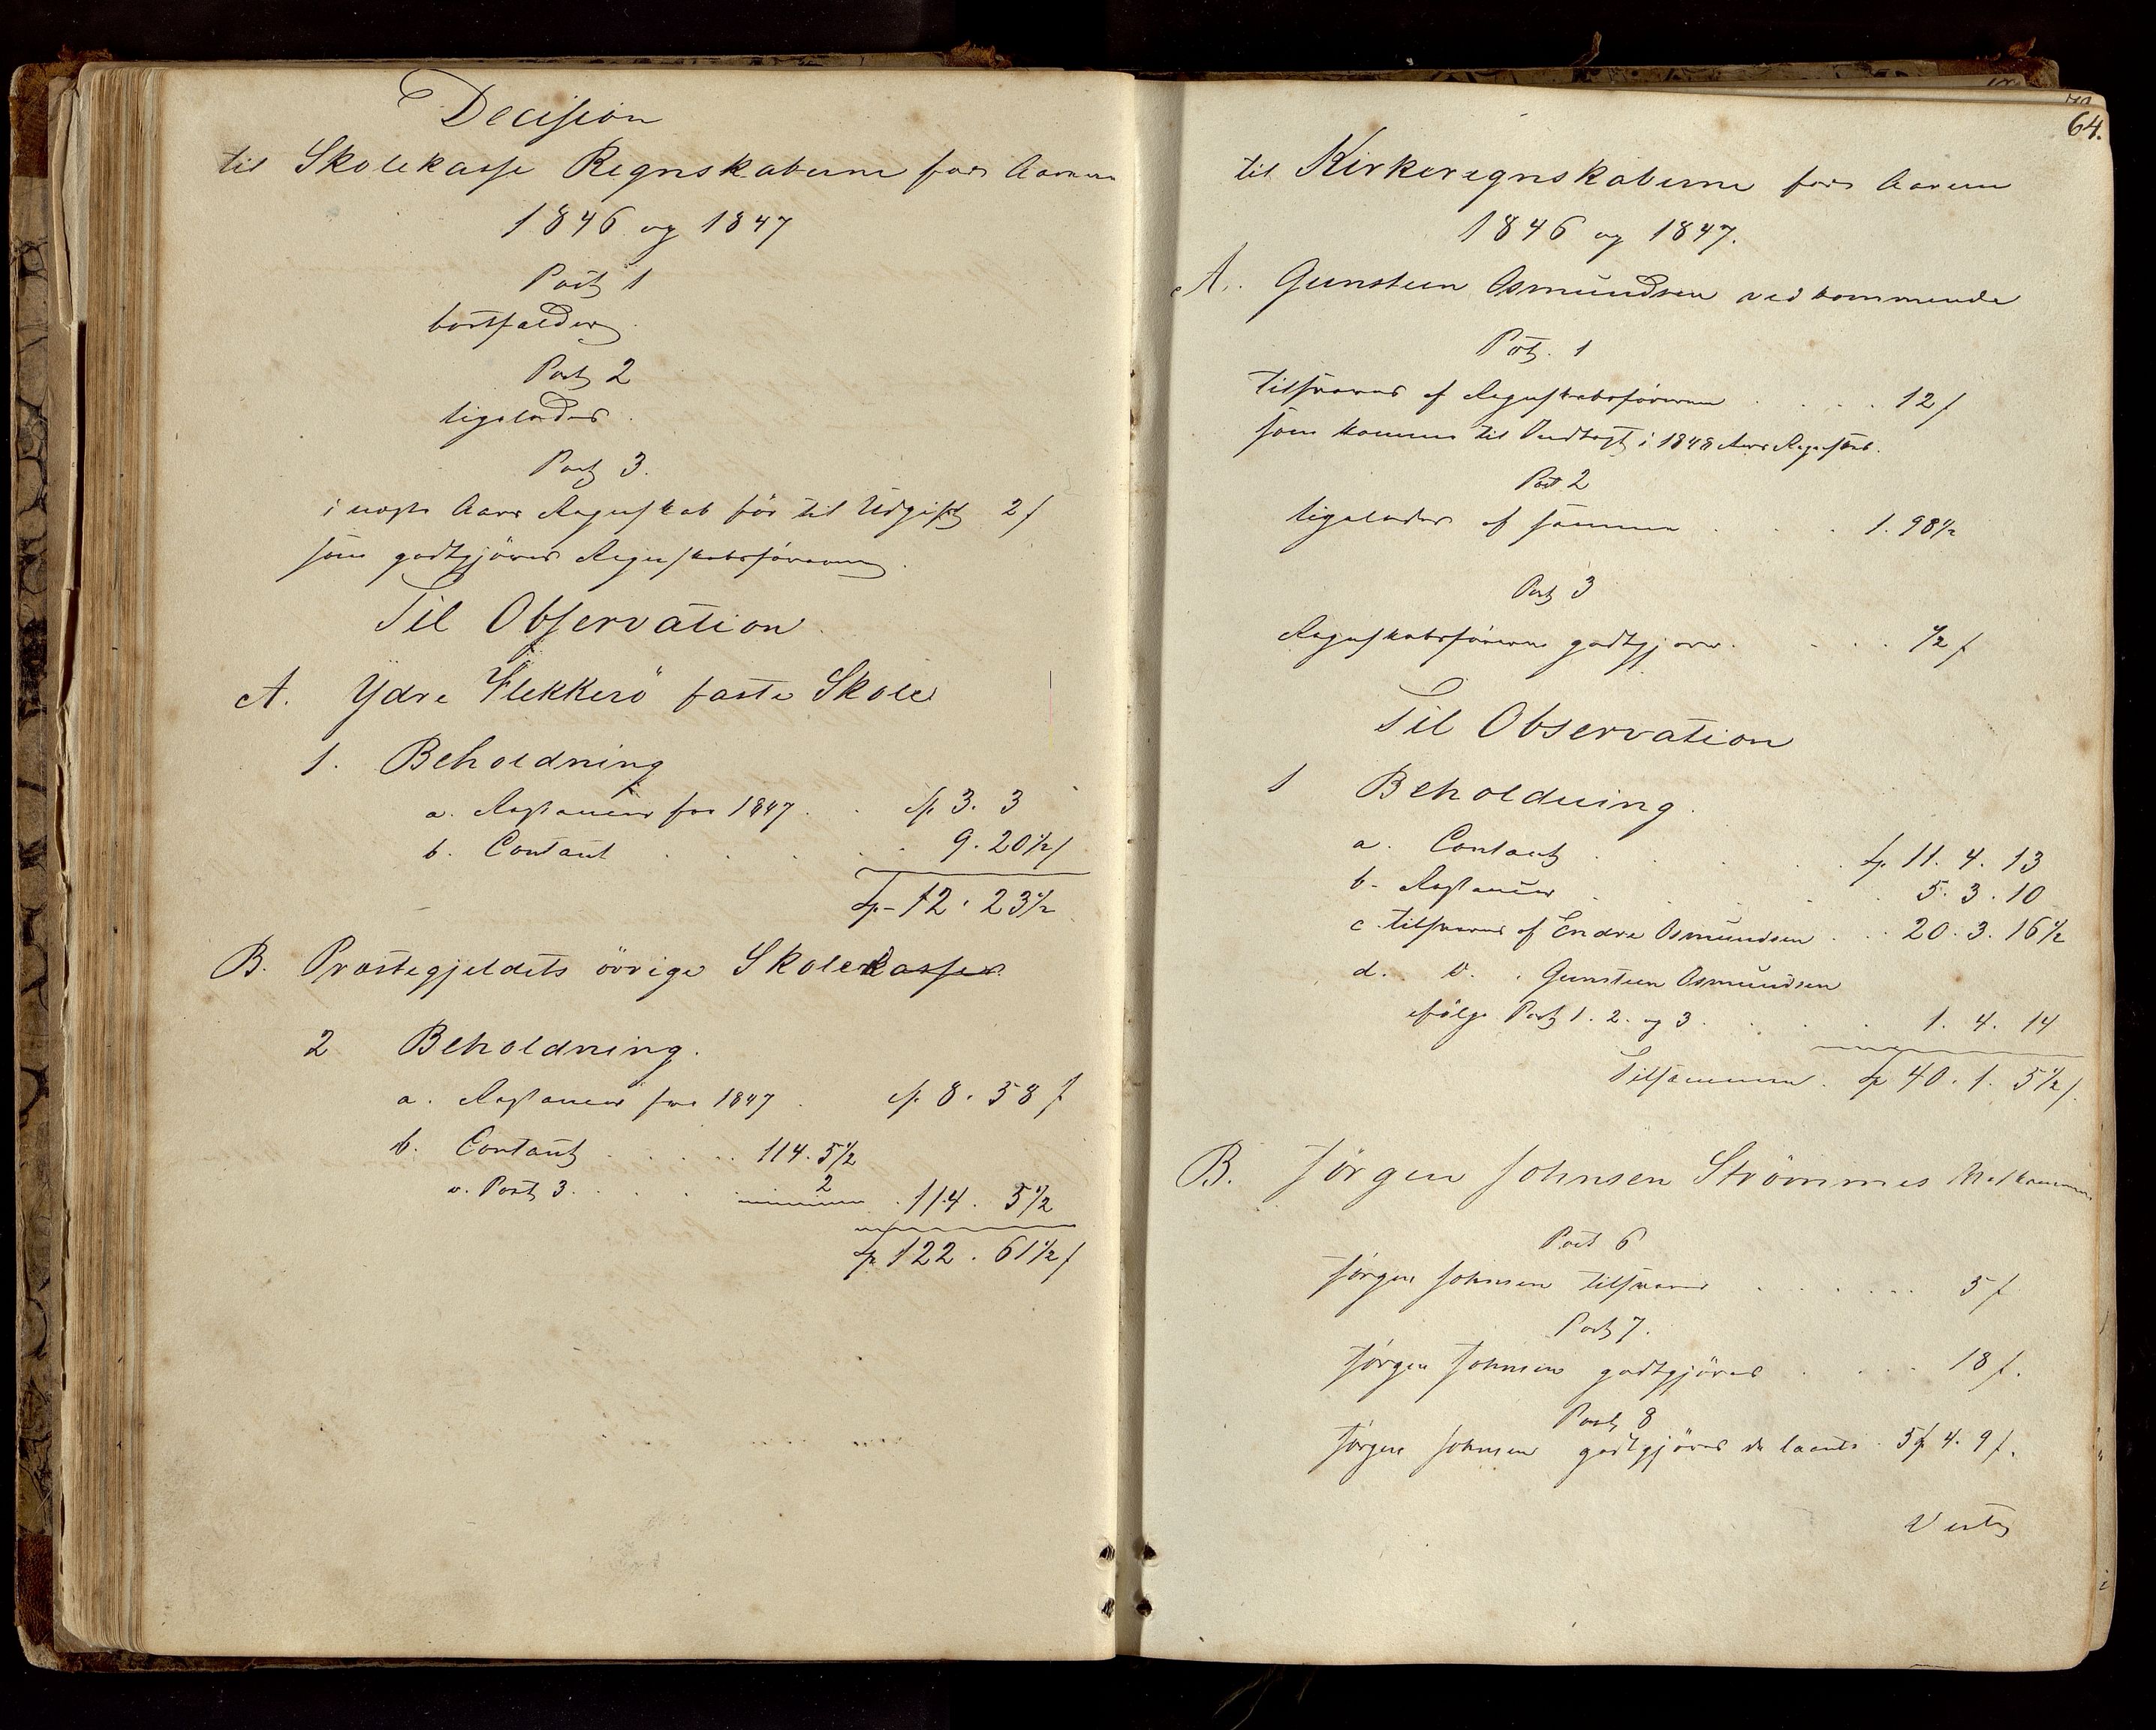 Decision
til Skolekasse Regnskaberne for Aarene
1846 og 1847
Post 1
bortfalder.
Post 2
ligeledes.
Post 3.
i næste Aars Regnskabför til Udgift 2 ſ
som godtgjöres Regnskabsföreren.
Til Observation
A. Ydre Flekkerö faste Skole
1. Beholdning
a. Restancer for 1847 . . Sp 3. 3
b. Contant . . . . . 9. 20 1/2 ſ
Sp 12. 23 1/2
B. Præstegjeldets övrige Skolekasse
2 Beholdning.
a. Restancer for 1847 . Sp. 8. 58 ſ
b. Contant . . . . . 114. 5 1/2
Post 3. . . . . 2
114. 5 1/2
Sp 122. 61 1/2 ſ
64.
til Kirkeregnskaberne for Aarene
1846 og 1847.
A. Gunsteen Osmundsen vedkommende
Post. 1
tilsvares af Regnskabsföreren . . . . 12 ſ
som kommer til Indtægt i 1848 Aars Regnskab.
Post 2
ligeledes af samme . . . 1. 98 1/2
Post 3
Regnskabsföreren godtgjöres . . . . 1/2 ſ
Til Observation
1 Beholdning.
a. Contant . . . . Sp 11. 4. 13
b. Restancer . . . . 5. 3. 10
c. tilsvares af Endre Osmundsen . . 20. 3. 16 1/2
d. D. . Gunsteen Osmundsen
ifölge Post 1. 2. og 3. . . . 1. 4. 14
Tilsammen. Sp 40. 1. 5 1/2 ſ.
B. Jörgen Johnsen Strömmes
Post 6
Jörgen Johnsen tilsvarer . . . . . . 5 ſ
Post 7.
Jörgen Johnsen godtgjöres . . . 18 ſ.
Post 8
Jörgen Johnsen godtgjöres de laante . 5 Sp 4. 9 ſ.